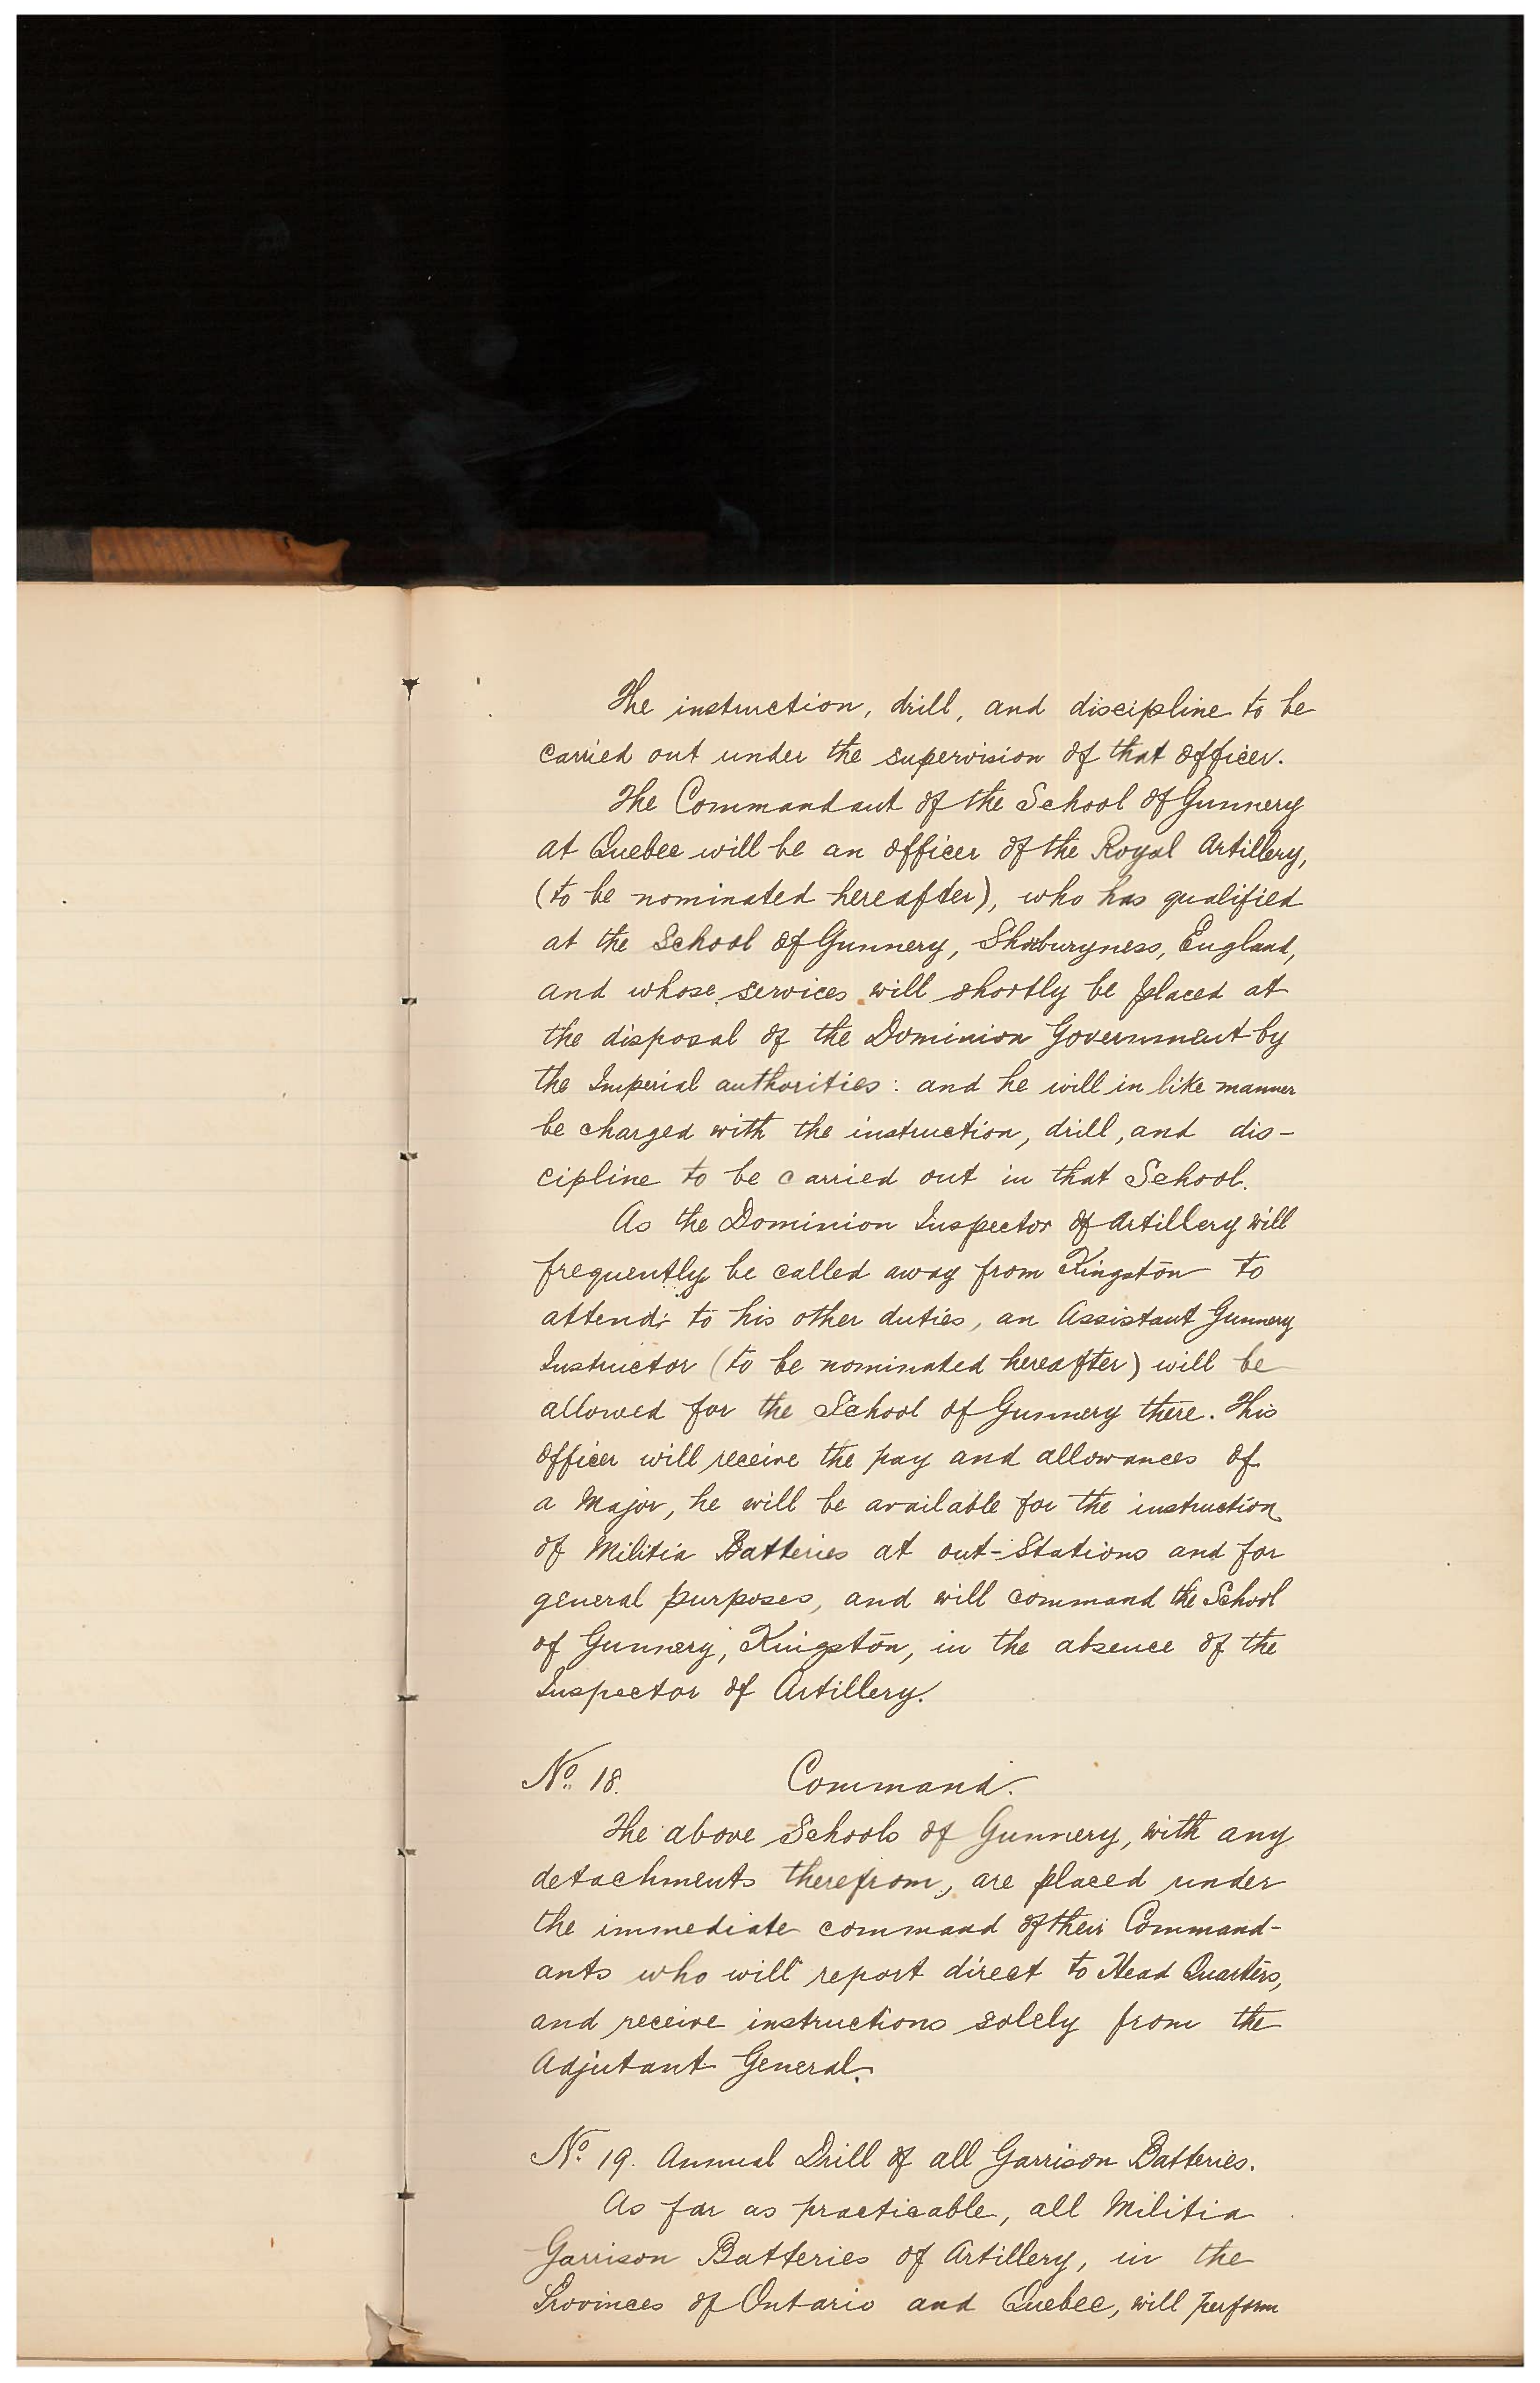 The instruction, drill, and discipline to be
carried out under the supervision of that officer.
The Commandant of the School of Gunnery
at Quebec will be an officer of the Royal Artillery,
(to be nominated hereafter), who has qualified
at the School of Gunnery, Shoeburyness, England,
and whose services will shortly be placed at
the disposal of the Dominion Government by
the Imperial authorities: and he will in like manner
be charged with the instruction, drill, and dis-
cipline to be carried out in that School.
As the Dominion Inspector of Artillery will
frequently be called away from Kingston to
attend to his other duties, an Assistant Gunnery
Instructor (to be nominated hereafter) will be
allowed for the School of Gunnery there. This
officer will receive the pay and allowances of
a Major, he will be available for the instruction
of Militia Batteries at out-Stations and for
general purposes, and will command the School
of Gunnery, Kingston, in the absence of the
Inspector of Artillery.
No. 18. Command.
The above Schools of Gunnery, with any
detachments therefrom, are placed under
the immediate command of their Command-
ants who will report direct to Head Quarters,
and receive instructions solely from the
Adjutant General.
No. 19. Annual Drill of all Garrison Batteries.
As far as practicable, all Militia
Garrison Batteries of Artillery, in the
Provinces of Ontario and Quebec, will perform